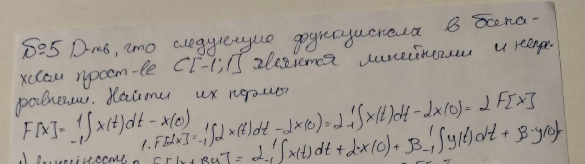 №5 Д-ть, что следующие функционала в бана-
ховом прост-ве C[-1;1] являются линейными и непре-
рывными. Найти их нормы
F[x]= ₋₁∫¹x(t)dt - x(0)
1. F[2x]= ₋₁∫¹2x(t)dt - 2x(0) = 2₋₁∫¹x(t)dt - 2x(0) = 2F[x]
= 2₋₁∫¹x(t)dt + 2·x(0) + β₋₁∫¹y(t)dt + β·y(0)